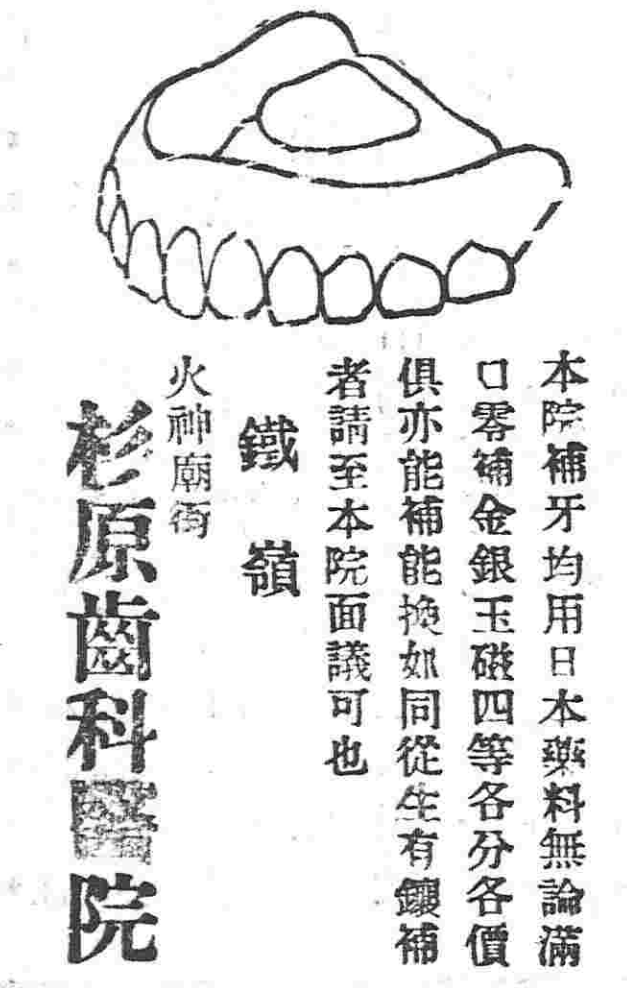 本院補牙均用日本藥料無論滿
口零補金銀玉磁四等各分各價
俱亦能補能換如同從生有鑲補
者請至本院面議可也
鐵嶺
火神廟街
杉原齒科醫院